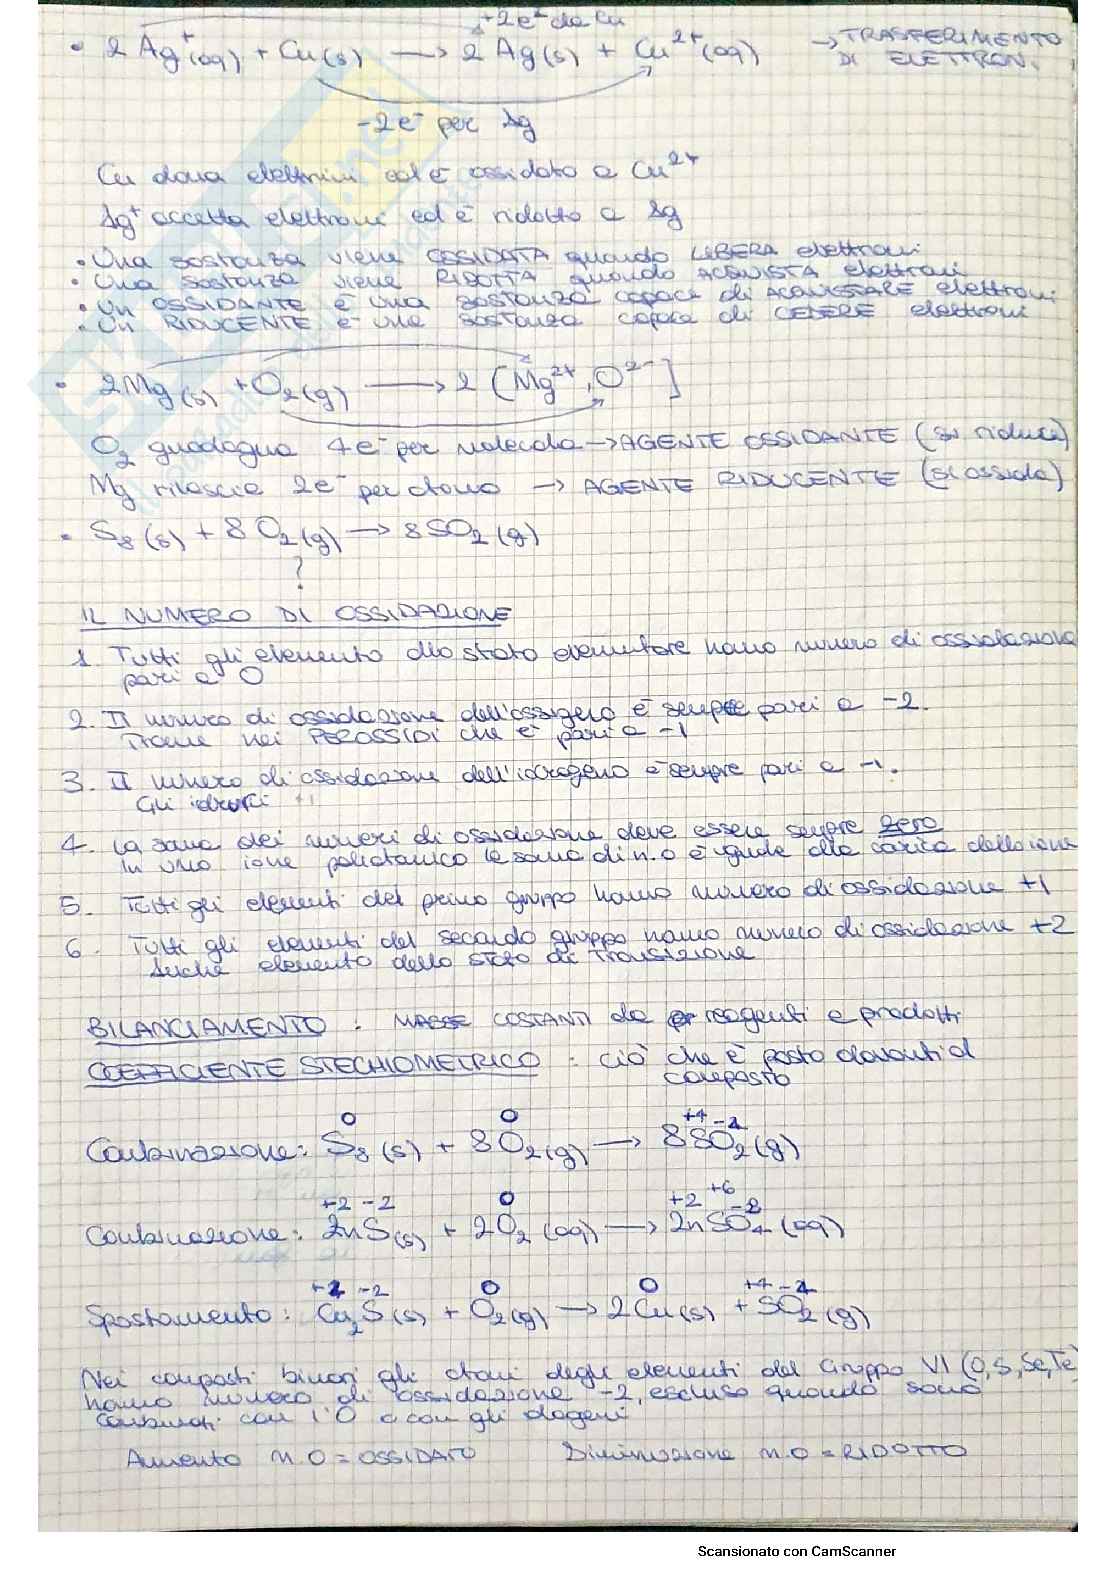 +2e⁻ da Cu
• 2 Ag⁺(aq) + Cu(s) → 2 Ag(s) + Cu²⁺(aq) → TRASFERIMENTO
DI ELETTRON.
-2e⁻ per Ag
Cu dona elettroni ed è ossidato a Cu²⁺
Ag⁺ accetta elettroni ed è ridotto a Ag
• Una sostanza viene OSSIDATA quando LIBERA elettroni
• Una sostanza viene RIDOTTA quando ACQUISTA elettroni
• Un OSSIDANTE è una sostanza capace di ACQUISTARE elettroni
• Un RIDUCENTE è una sostanza capace di CEDERE elettroni
• 2Mg(s) + O₂(g) → 2 [Mg²⁺, O²⁻]
O₂ guadagna 4e⁻ per molecola → AGENTE OSSIDANTE (si riduce)
Mg rilascia 2e⁻ per atomo → AGENTE RIDUCENTE (si ossida)
• S₈(s) + 8 O₂(g) → 8SO₂(g)
?
IL NUMERO DI OSSIDAZIONE
1. Tutti gli elemento allo stato elementare hanno numero di ossidazione
pari a 0
2. Il numero di ossidazione dell'ossigeno è sempre pari a -2.
Tranne nei PEROSSIDI che è pari a -1
3. Il numero di ossidazione dell'idrogeno è sempre pari a -1.
Gli idruri +1
4. La somma dei numeri di ossidazione deve essere sempre zero
In uno ione poliatomico la somma di n.o è uguale alla carica dello ione
5. Tutti gli elementi del primo gruppo hanno numero di ossidazione +1
6. Tutti gli elementi del secondo gruppo hanno numero di ossidazione +2
Anche elemento dello stato di Transizione
BILANCIAMENTO : MASSE COSTANTI da reagenti e prodotti
COEFFICIENTE STECHIOMETRICO : ciò che è posto davanti al
composto
0 0 +4 -2
Combinazione: S₈(s) + 8O₂(g) → 8SO₂(g)
+2 -2 0 +2 +6 -2
Combinazione: ZnS(s) + 2O₂(aq) → ZnSO₄(aq)
+1 -2 0 0 +4 -2
Spostamento: Cu₂S(s) + O₂(g) → 2Cu(s) + SO₂(g)
Nei composti binari gli atomi degli elementi del Gruppo VI (O,S,Se,Te)
hanno numero di ossidazione -2, escluso quando sono
combinati con l'O o con gli alogeni
Aumento n.O = OSSIDATO Diminuzione n.O = RIDOTTO
Scansionato con CamScanner